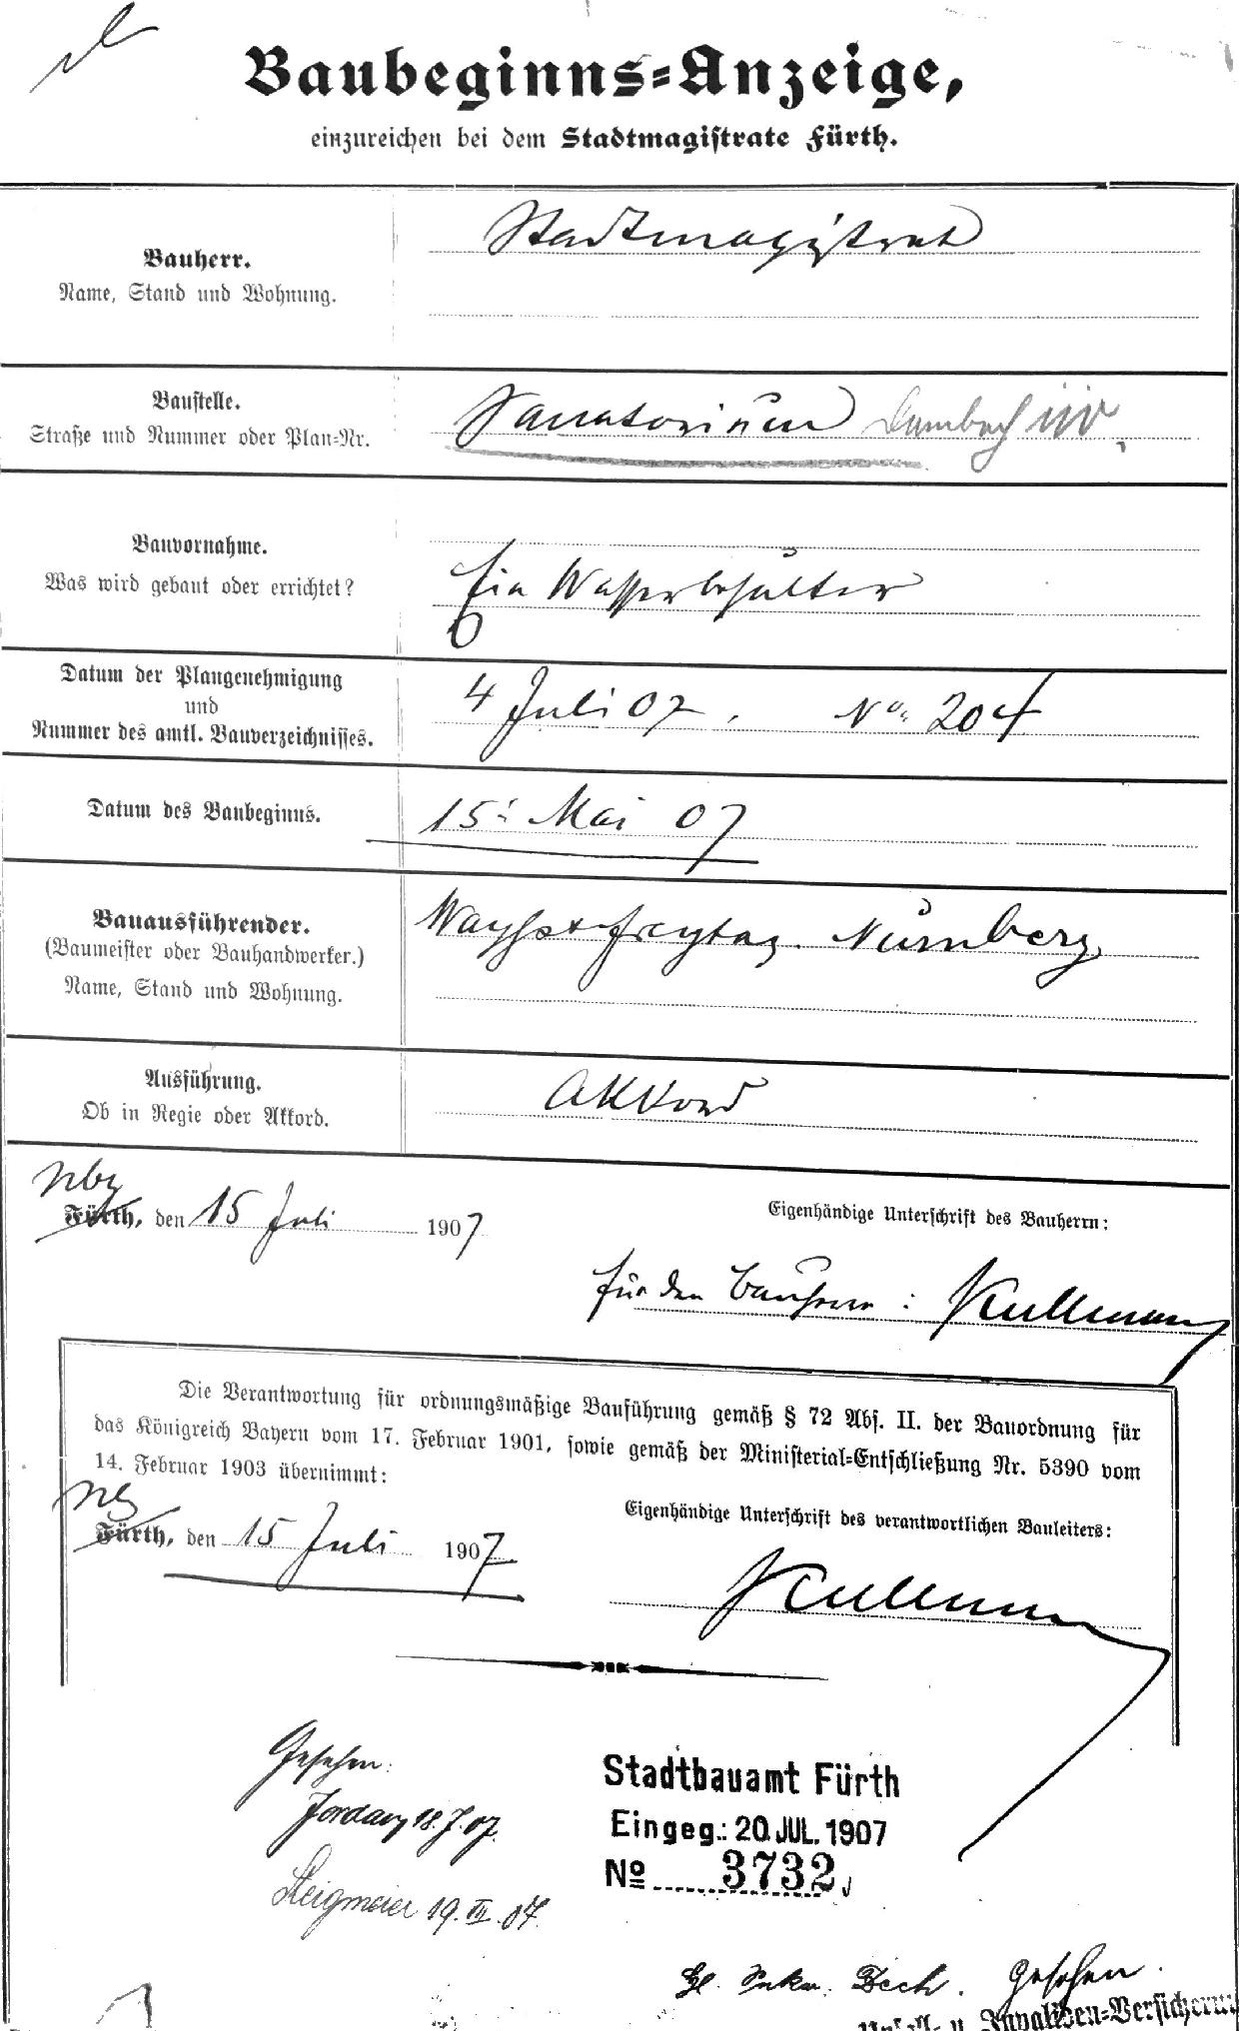 Baubeginns=Anzeige,
einzureichen bei dem Stadtmagistrate Fürth.
Bauherr.
Name, Stand und Wohnung.
Stadtmagistrat
Baustelle.
Straße und Nummer oder Plan=Nr.
Sanatorium Dambach
Bauvornahme.
Was wird gebaut oder errichtet?
Ein Wasserbehälter
Datum der Plangenehmigung
und
Nummer des amtl. Bauverzeichnisses.
4 Juli 07, No. 204
Datum des Baubeginns.
15. Mai 07
Bauausführender.
(Baumeister oder Bauhandwerker.)
Name, Stand und Wohnung.
Wayss & Freytag. Nürnberg.
Ausführung.
Ob in Regie oder Akkord.
Akkord
Nbg
Fürth, den 15 Juli 1907
Eigenhändige Unterschrift des Bauherrn:
für den Bauherrn: Kullmann
Die Verantwortung für ordnungsmäßige Bauführung gemäß § 72 Abs. II. der Bauordnung für
das Königreich Bayern vom 17. Februar 1901, sowie gemäß der Ministerial=Entschließung Nr. 5390 vom
14. Februar 1903 übernimmt:
Nbg
Fürth, den 15 Juli 1907
Eigenhändige Unterschrift des verantwortlichen Bauleiters:
Kullmann
Gesehen:
Jordan 18.7.07.
Steigmeier 19. VII. 07.
Stadtbauamt Fürth
Eingeg.: 20. JUL. 1907
No 3732
Gesehen.
Unfall- u. Invaliden=Versicherung